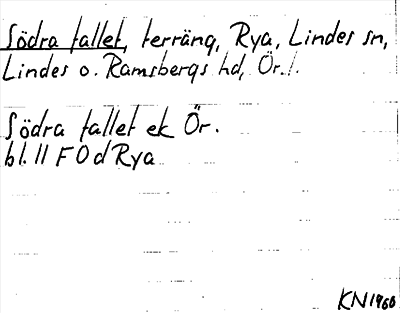 Södra tallet, terräng, Rya, Lindes sn,
Lindes o. Ramsbergs hd, Ör.l.
Södra tallet ek Ör.
bl. 11 F 0 d Rya
KN 1966